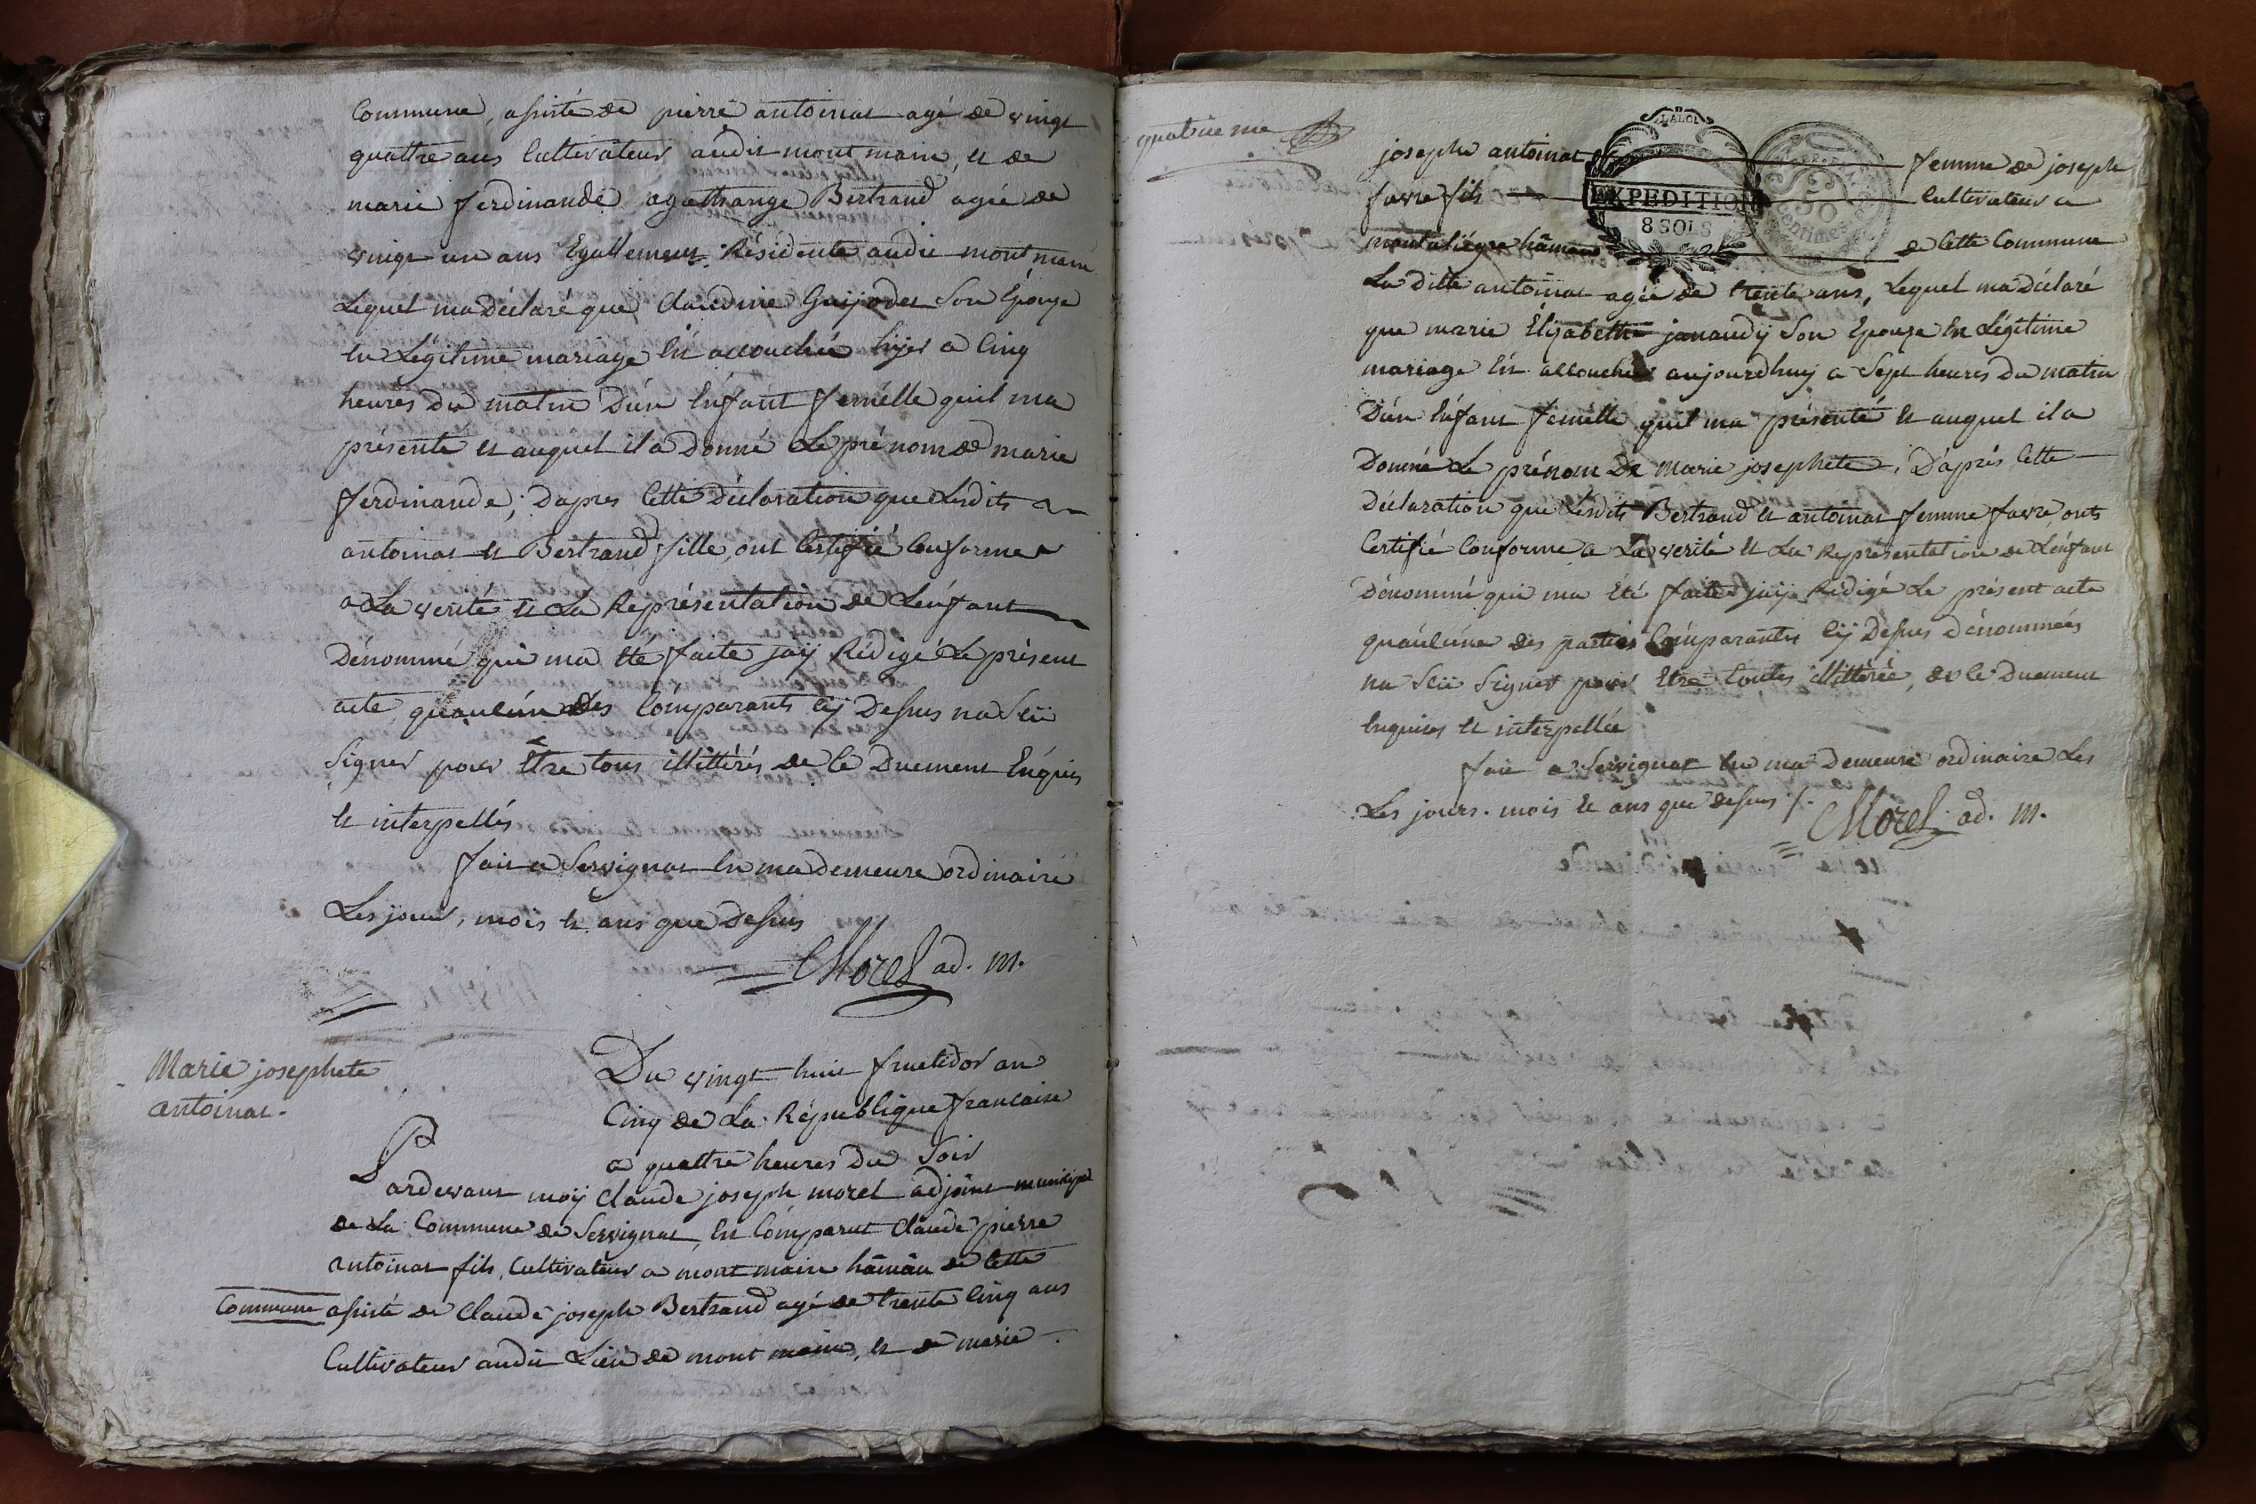 Commune, assisté de pierre antoinat agé de vingt
quattre ans Cultivateur audit mont main, et de
marie ferdinande agathange Bertrand agée de
vingt un ans Egallement Résidente audit mont main
Lequel ma déclaré que Claudine Guijodet Son Epouze
En Légitime mariage Est accouchée hyer a Cinq
heures du matin D'un Enfant femelle quil ma
présenté et auquel il a Donné Le prénom de marie
ferdinande; D'apres Cette Déclaration que Lesdits
antoinat et Bertrand fille, ont Certifié Conforme
a La verité et La Représentation de L'enfant
Dénommé qui ma Eté faite jaÿ Rédigé Le présent
acte, qu'aulcun des Comparants cÿ Dessus na Sçü
Signer pour Etre tous illittérés de Ce Duement Enquis
et interpellés
fait a Servignat En ma demeure ordinaire
Les jour, mois et ans que dessus
Morel ad. m.
Marie josephete
antoinat.
Du vingt huit fructidor an
Cinq de La République francaise
a quattre heures du Soir
Pardevant moÿ Claude joseph morel adjoint municipal
de La Commune de Servignat, Est Comparut Claude pierre
antoinat fils, Cultivateur a mont main hâmau de Cette
Commune assisté de Claude joseph Bertrand agé de trente Cinq ans
Cultivateur audit Lieu de mont main, et de marie
quatrieme
josephe antoinat femme de joseph
favre fils Cultivateur a
hâmau de Cette Commune
LALOI
EXPEDITION
8 SOLS
50
Centimes
La ditte antoinat agée de trente ans, Lequel ma Déclaré
que marie Elizabeth janaudÿ Son Epouze En Légitime
mariage Est accouchée aujourdhuÿ a Sept heures du matin
D'un Enfant femelle quil ma présenté et auquel il a
Donné Le prénom De marie josephete; D'aprés Cette
Déclaration que Lesdits Bertrand et antoinat femme favre, onts
Certifié Conforme a La verité et La Représentation de L'enfant
Dénommé qui ma Eté faite jaÿ Rédigé Le présent acte
qu'aulcune des parties Comparantes cÿ Dessus dénommées
na Sçü Signer pour Etre toutes illittérée, de Ce Duement
Enquises et interpellée
fait a Servignat En ma Demeure ordinaire Les
Les jours. mois et ans que dessus /.
Morel ad. m.